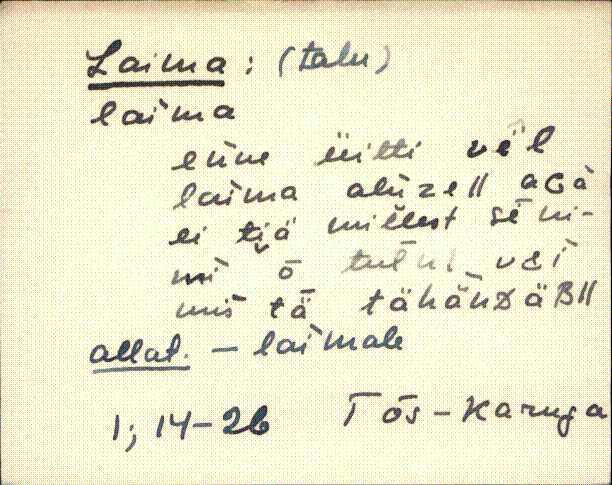 Laima : (talu)
laima
enne üitti vēl
laima alüzell aGà
ei tiä millest sē ni-
mi ō tulnu vɛi
mis tä tähänDäBll
allat. – laimale
1; 14–26 Tōs-Karuga